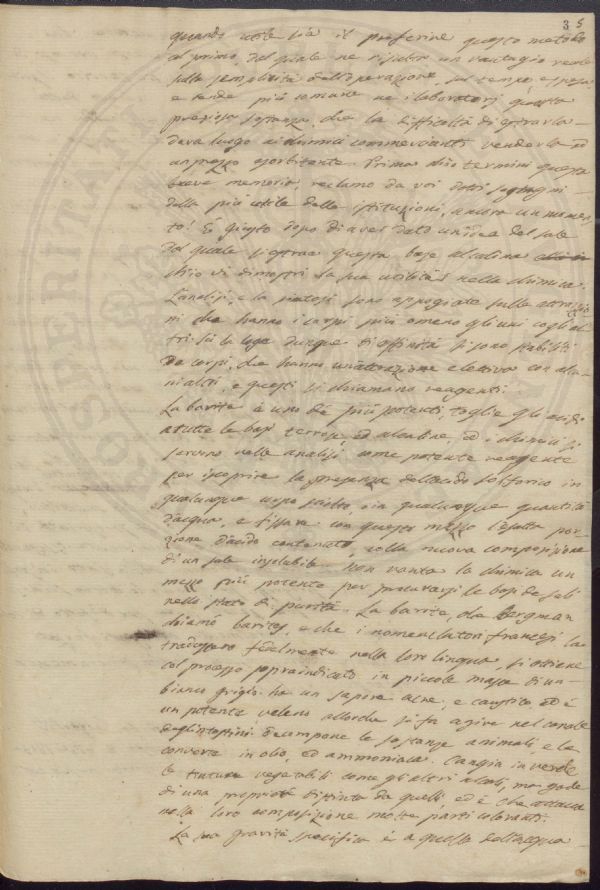 35
quando utile sia il preferire questo metodo
al primo, del quale ne risulta un vantagio reale
sulla semplicità dell'operazione, sul tempo, e spesa,
e rende più comune ne i laboratorj questa
preziosa sostanza, che la difficoltà di estrarla
dava luogo ai chimici commercianti venderla ad
un prezzo esorbitante. Prima ch'io termini questa
breve memoria, reclamo da voi dotti
della più utile delle istituzioni, ancora un momen-
to! È giusto dopo di aver dato un'idea del sale
del quale si estrae questa base alcalina
ch'io vi dimostri la sua utilità nella chimica.
L'analisi, e la sintesi sono appoggiate sulle attrazio-
ni che hanno i corpi più o meno gli uni cogli al-
tri. Su la legge dunque di affinità si sono stabiliti
De corpi, che hanno un'attrazione elettiva con alcu-
ni altri, e questi si chiamano reagenti.
La barite è uno de più potenti, toglie gli acidi
a tutte le basi terrose, ed alcaline, ed i chimici si
servono nelle analisi come potente reagente
per iscoprire la presenza dell'acido solforico in
qualunque corpo sciolto, in qualunque quantità
d'acqua, e fissare con questo mezzo l'esatta por-
zione d'acido contenuto, colla nuova composizione
di un sale insolubile. Non vanta la chimica un
mezzo più potente per procurarsi le basi de sali
nello stato di purità. La barite, che Bergman
chiamò barites, e che i nomenclatori francesi la
tradussero fedelmente nella loro lingua, si ottiene
col processo sopraindicato in piccole masse di un
bianco grigio. ha un sapore acre, e caustico, ed è
un potente veleno allorché si fa agire nel canale
degl'intestini. Decompone le sostanze animali, e le
converte in olio, ed ammoniaca. Cangia in verde
le tinture vegetabili come gli altri alcali, ma gode
di una proprietà distinta da quelli, ed è che attacca
nella loro composizione molte parti coloranti.
La sua gravità specifica è a quella dell'acqua